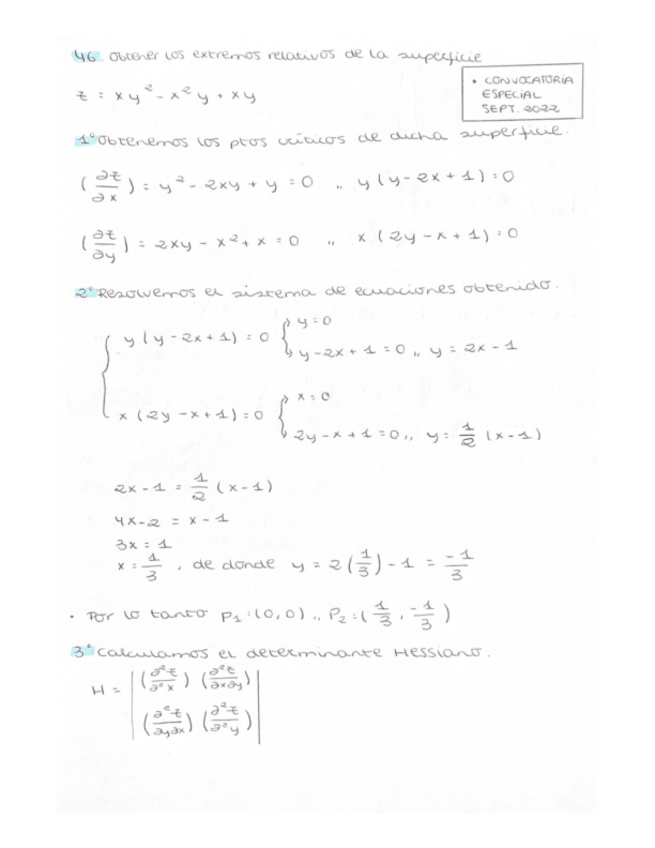 46. Obtener los extremos relativos de la superficie
z = xy² - x²y + xy
• CONVOCATORIA
ESPECIAL
SEPT. 2022
1º Obtenemos los ptos críticos de dicha superficie.
(∂z/∂x) = y² - 2xy + y = 0 ,, y (y - 2x + 1) = 0
(∂z/∂y) = 2xy - x² + x = 0 ,, x (2y - x + 1) = 0
2º Resolvemos el sistema de ecuaciones obtenido.
y (y - 2x + 1) = 0
y = 0
y - 2x + 1 = 0 ,, y = 2x - 1
x (2y - x + 1) = 0
x = 0
2y - x + 1 = 0 ,, y = 1/2 (x - 1)
2x - 1 = 1/2 (x - 1)
4x - 2 = x - 1
3x = 1
x = 1/3 , de donde y = 2(1/3) - 1 = -1/3
• Por lo tanto P₁ : (0,0) ,, P₂ : (1/3, -1/3)
3º Calculamos el determinante Hessiano.
H = | (∂²z/∂²x) (∂²z/∂x∂y) |
| (∂²z/∂y∂x) (∂²z/∂²y) |